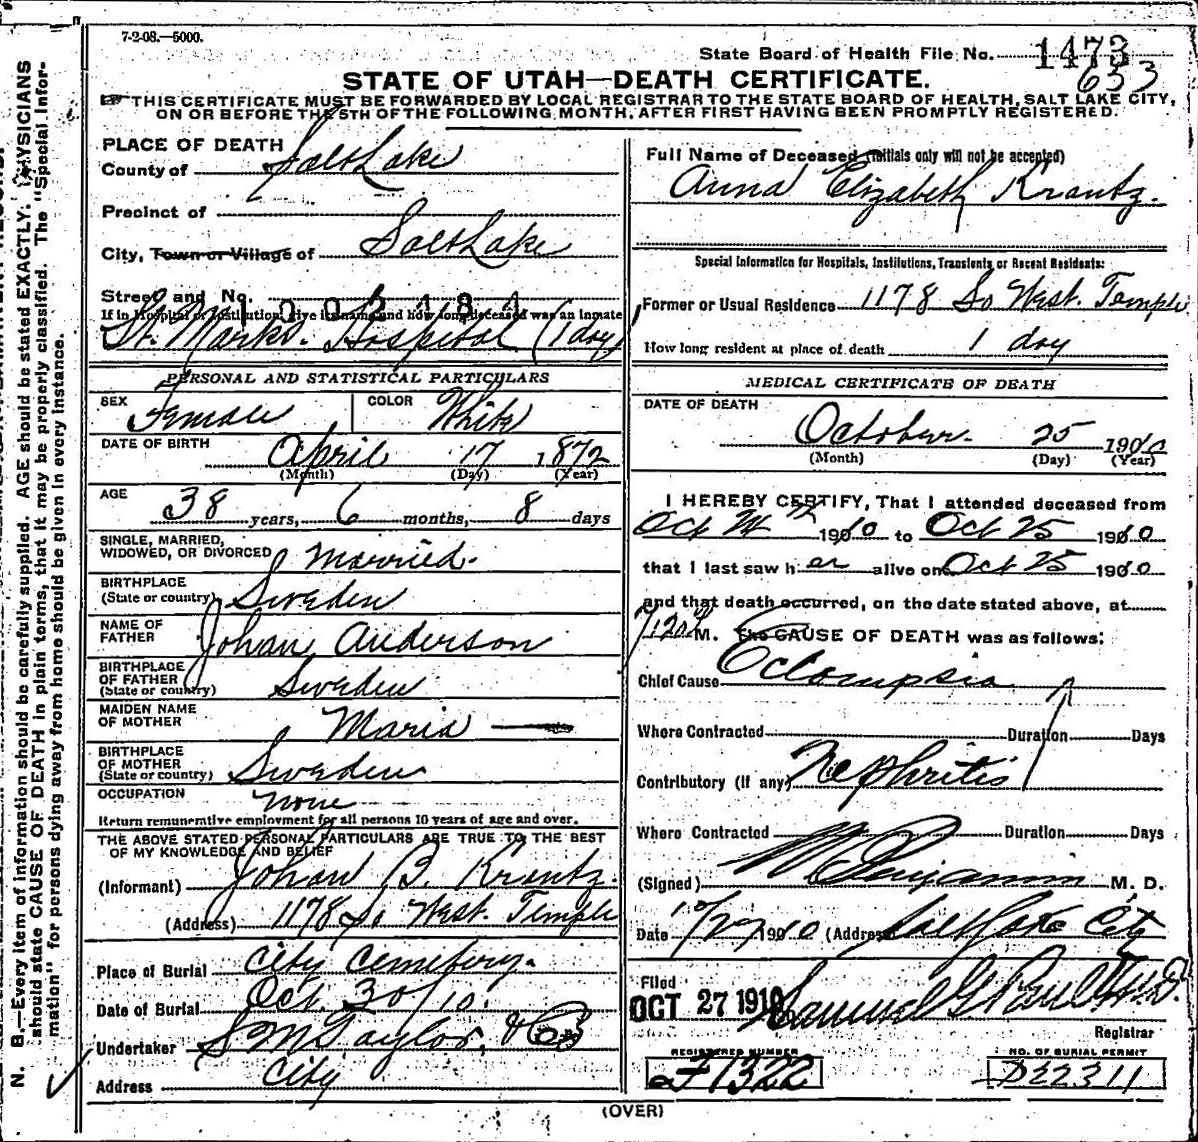 7-2-08.—5000.
State Board of Health File No. 1473
653
STATE OF UTAH—DEATH CERTIFICATE.
THIS CERTIFICATE MUST BE FORWARDED BY LOCAL REGISTRAR TO THE STATE BOARD OF HEALTH, SALT LAKE CITY,
ON OR BEFORE THE 5TH OF THE FOLLOWING MONTH, AFTER FIRST HAVING BEEN PROMPTLY REGISTERED.
PLACE OF DEATH
County of Salt Lake
Precinct of
City, Town or Village of Salt Lake
Street and No.
If in Hospital or Institution, give its name and how long deceased was an inmate
St. Marks. Hospital (1 day)
PERSONAL AND STATISTICAL PARTICULARS
SEX Female COLOR White
DATE OF BIRTH April 17 1872
(Month) (Day) (Year)
AGE
38 years, 6 months, 8 days
SINGLE, MARRIED,
WIDOWED, OR DIVORCED Married.
BIRTHPLACE
(State or country) Sweden
NAME OF
FATHER Johan Anderson
BIRTHPLACE
OF FATHER
(State or country) Sweden
MAIDEN NAME
OF MOTHER Maria —
BIRTHPLACE
OF MOTHER
(State or country) Sweden
OCCUPATION none
Return remunerative employment for all persons 10 years of age and over.
THE ABOVE STATED PERSONAL PARTICULARS ARE TRUE TO THE BEST
OF MY KNOWLEDGE AND BELIEF
(Informant) Johan B. Krantz.
(Address) 1178 So West. Temple
Place of Burial City Cemetery.
Date of Burial Oct. 30/10.
Undertaker S M Taylor, & Co
Address City
Full Name of Deceased (Initials only will not be accepted)
Anna Elizabeth Krantz.
Special Information for Hospitals, Institutions, Transients or Recent Residents:
Former or Usual Residence 1178 So West. Temple
How long resident at place of death 1 day
MEDICAL CERTIFICATE OF DEATH
DATE OF DEATH
October. 25 1910
(Month) (Day) (Year)
I HEREBY CERTIFY, That I attended deceased from
Oct 24th 1910 to Oct 25 1910
that I last saw her alive on Oct 25 1910
and that death occurred, on the date stated above, at
M. The CAUSE OF DEATH was as follows:
Chief Cause Eclampsia
Where Contracted Duration Days
Contributory (If any) Nephritis
Where Contracted Duration Days
(Signed) Benjamin M. D.
Date 10/27 1910 (Address) Salt Lake City
Filed
OCT 27 1910 Samuel G Paul M.D.
Registrar
REGISTERED NUMBER
1322
NO. OF BURIAL PERMIT
D22311
(OVER)
N. B.—Every item of information should be carefully supplied. AGE should be stated EXACTLY. PHYSICIANS
should state CAUSE OF DEATH in plain terms, that it may be properly classified. The "Special Infor-
mation" for persons dying away from home should be given in every instance.